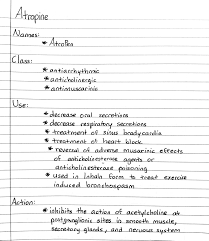 Atropine
Names:
* AtroPen
Class:
* antiarrhythmic
* anticholinergic
* antimuscarinic
Use:
* decrease oral secretions
* decrease respiratory secretions
* treatment of sinus bradycardia
* treatment of heart block
* reversal of adverse muscarinic effects
of anticholinesterase agents or
anticholinesterase poisoning
* used in inhale form to treat exercise
induced bronchospasm
Action:
* inhibits the action of acetylcholine at
postganglionic sites in smooth muscle,
secretory glands, and nervous system